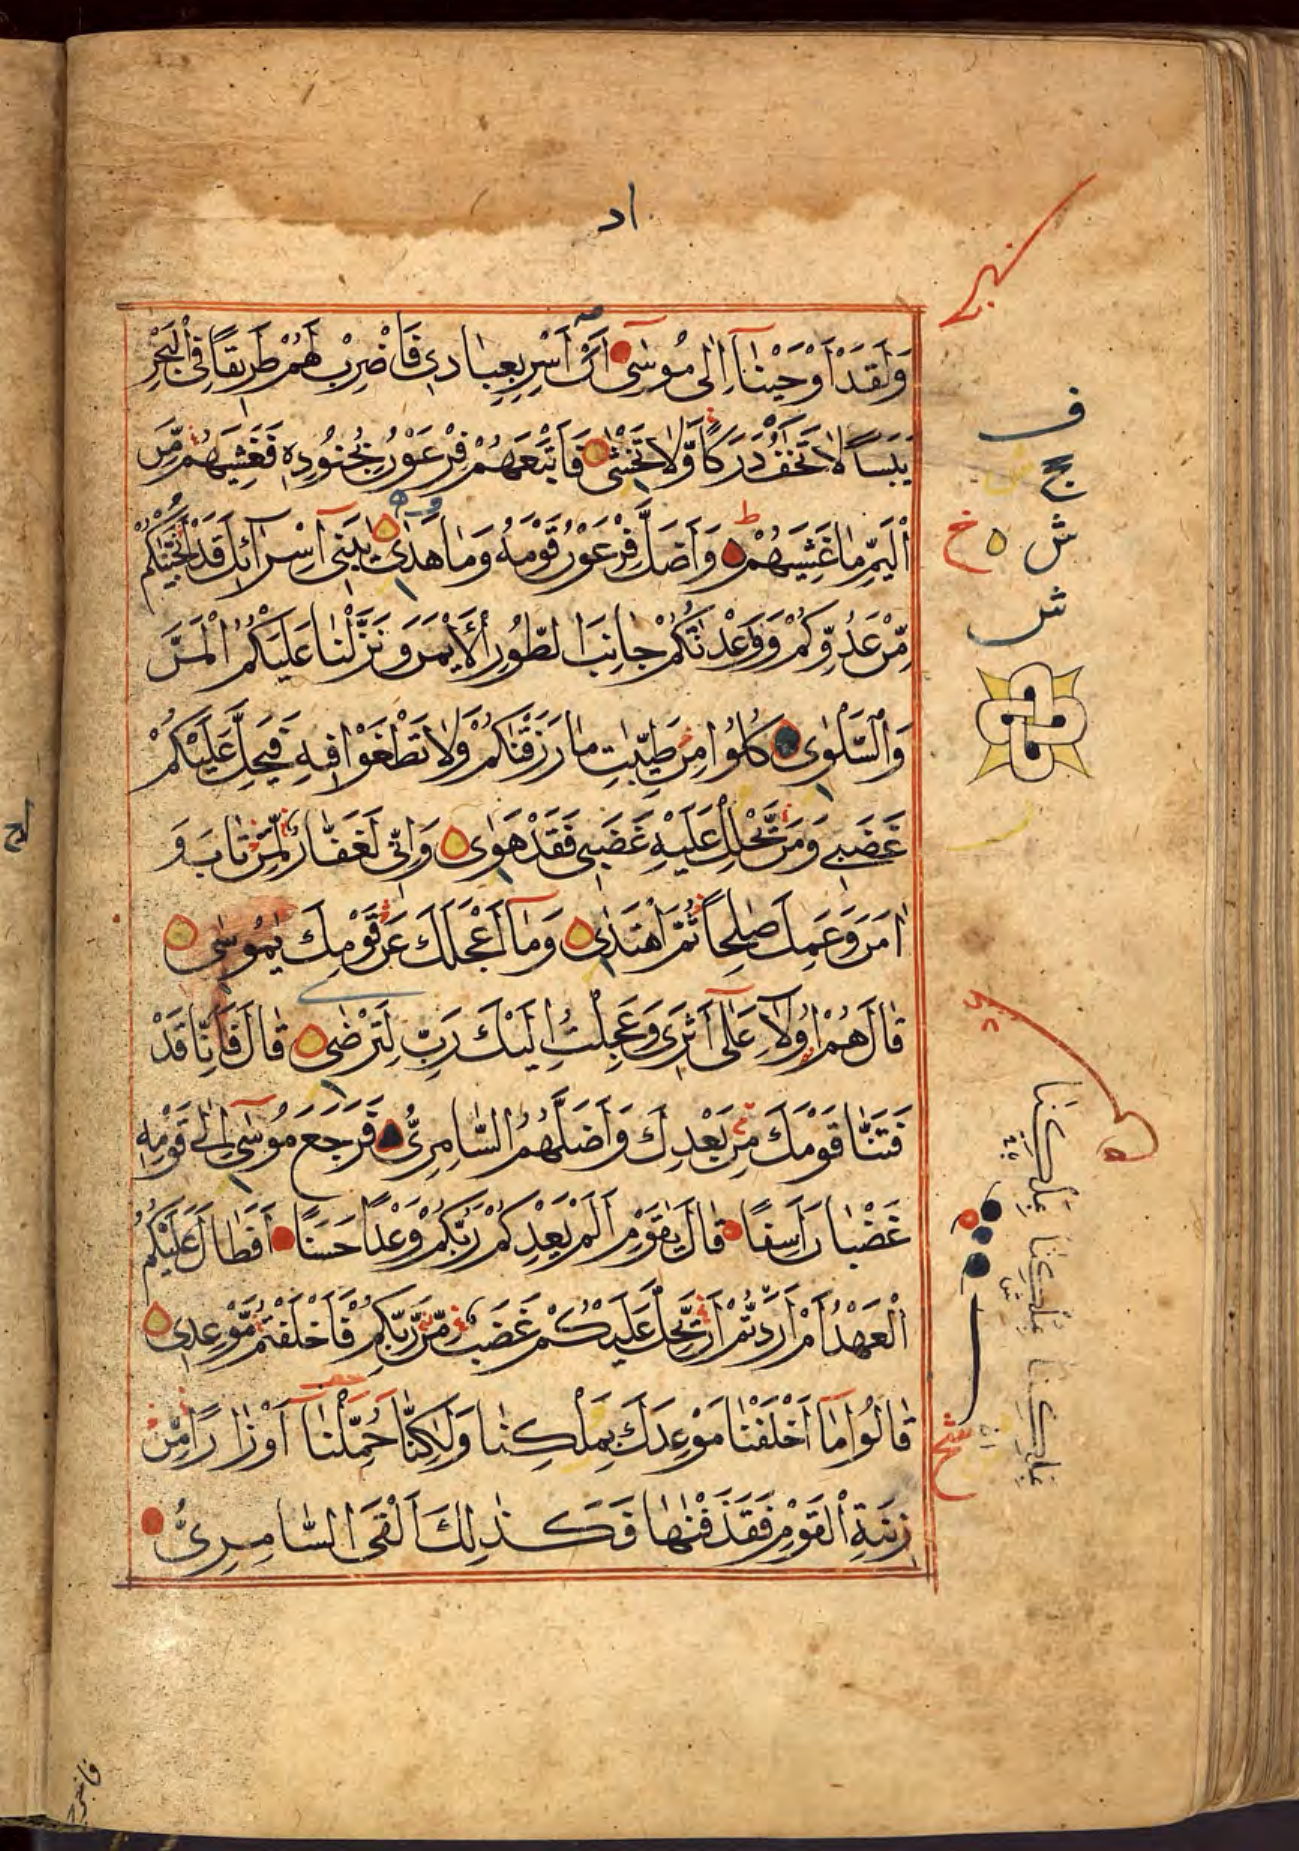 اد
وَلَقَدْ اَوْحَيْنَآ اِلٰى مُوسٰٓى اَنْ اَسْرِ بِعِبَادِى فَاضْرِبْ لَهُمْ طَرِيقًا فِى الْبَحْرِ
يَبَسًا لَا تَخٰفُ دَرَكًا وَّلَا تَخْشٰى فَاَتْبَعَهُمْ فِرْعَوْنُ بِجُنُودِهٖ فَغَشِيَهُمْ مِّنَ
الْيَمِّ مَا غَشِيَهُمْ وَاَضَلَّ فِرْعَوْنُ قَوْمَهٗ وَمَا هَدٰى يٰبَنِىٓ اِسْرَآئِلَ قَدْ اَنْجَيْنٰكُمْ
مِّنْ عَدُوِّكُمْ وَوٰعَدْنٰكُمْ جَانِبَ الطُّورِ الْاَيْمَنَ وَنَزَّلْنَا عَلَيْكُمُ الْمَنَّ
وَالسَّلْوٰى كُلُوا مِنْ طَيِّبٰتِ مَا رَزَقْنٰكُمْ وَلَا تَطْغَوْا فِيهِ فَيَحِلَّ عَلَيْكُمْ
غَضَبِى وَمَنْ يَّحْلِلْ عَلَيْهِ غَضَبِى فَقَدْ هَوٰى وَاِنِّى لَغَفَّارٌ لِّمَنْ تَابَ وَ
اٰمَنَ وَعَمِلَ صٰلِحًا ثُمَّ اهْتَدٰى وَمَآ اَعْجَلَكَ عَنْ قَوْمِكَ يٰمُوسٰى
قَالَ هُمْ اُولَآءِ عَلٰٓى اَثَرِى وَعَجِلْتُ اِلَيْكَ رَبِّ لِتَرْضٰى قَالَ فَاِنَّا قَدْ
فَتَنَّا قَوْمَكَ مِنْ بَعْدِكَ وَاَضَلَّهُمُ السَّامِرِىُّ فَرَجَعَ مُوسٰٓى اِلٰى قَوْمِهٖ
غَضْبَانَ اَسِفًا قَالَ يٰقَوْمِ اَلَمْ يَعِدْكُمْ رَبُّكُمْ وَعْدًا حَسَنًا اَفَطَالَ عَلَيْكُمُ
الْعَهْدُ اَمْ اَرَدْتُّمْ اَنْ يَّحِلَّ عَلَيْكُمْ غَضَبٌ مِّنْ رَّبِّكُمْ فَاَخْلَفْتُمْ مَّوْعِدِى
قَالُوا مَآ اَخْلَفْنَا مَوْعِدَكَ بِمَلْكِنَا وَلٰكِنَّا حُمِّلْنَآ اَوْزَارًا مِّنْ
زِينَةِ الْقَوْمِ فَقَذَفْنٰهَا فَكَذٰلِكَ اَلْقَى السَّامِرِىُّ
ف
ج
ش خ
ش
بَمَلْكِنَا بِمُلْكِنَا بِمِلْكِنَا